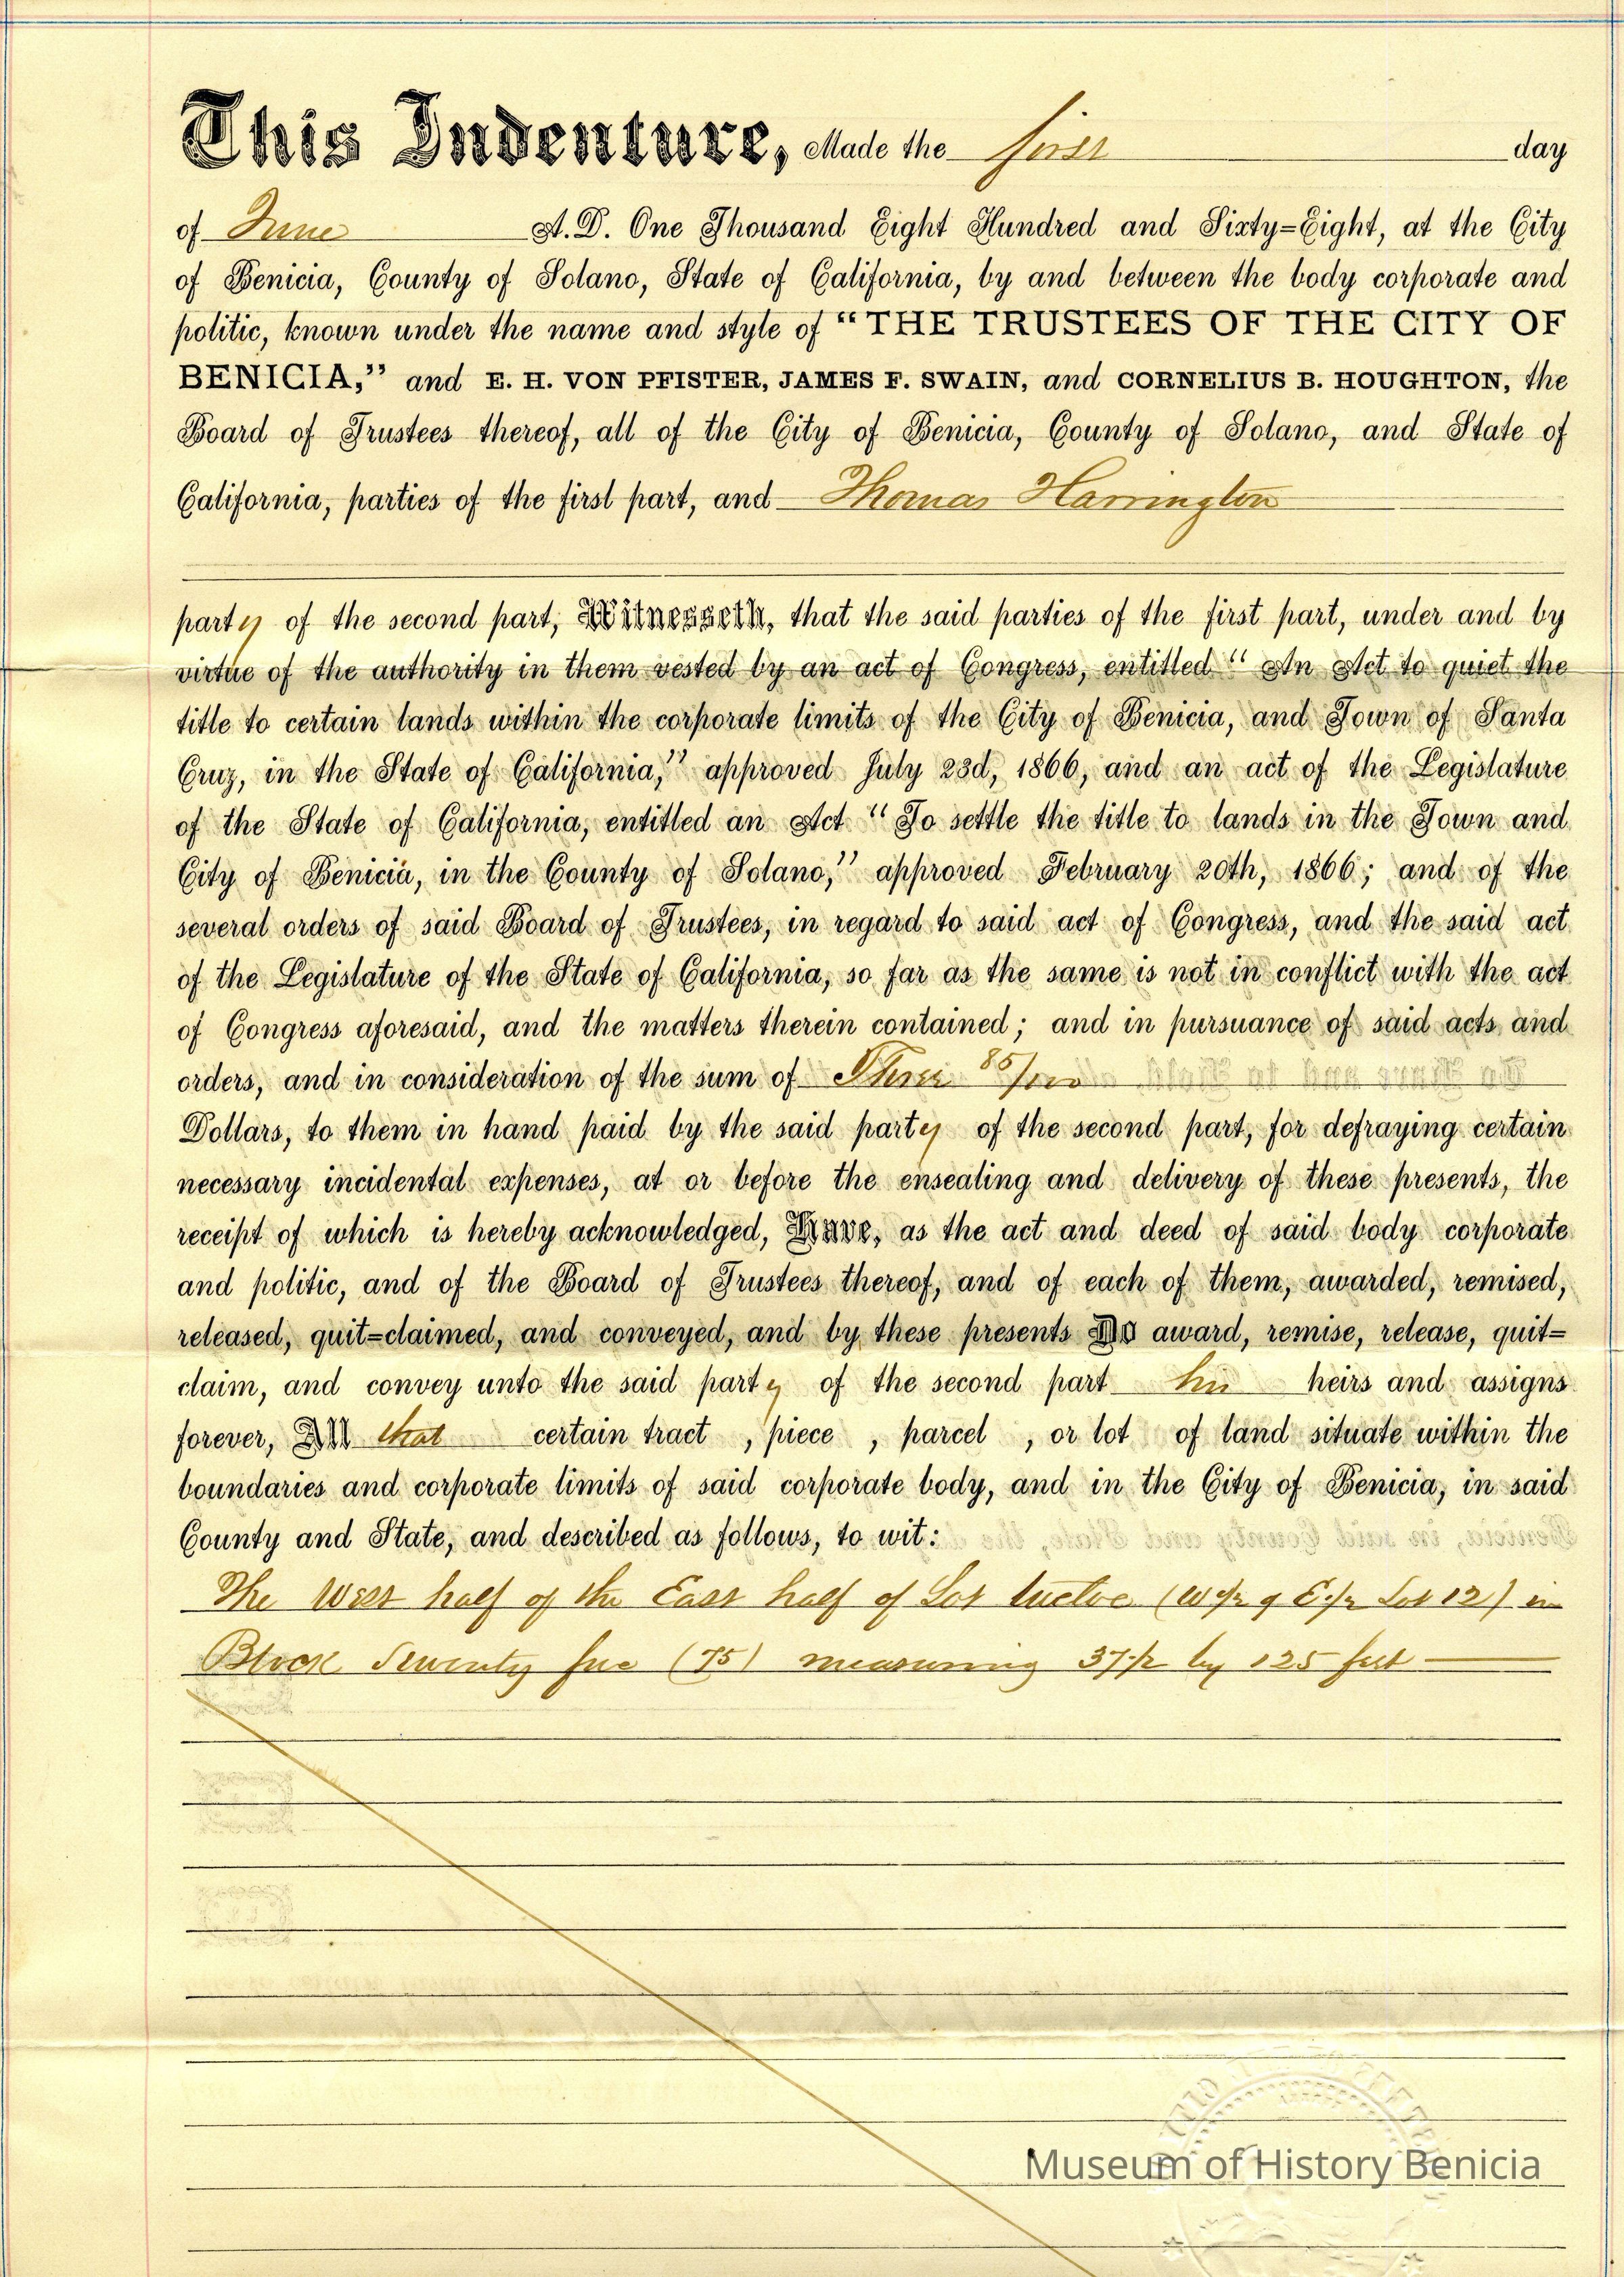 This Indenture, Made the first day
of June A.D. One Thousand Eight Hundred and Sixty=Eight, at the City
of Benicia, County of Solano, State of California, by and between the body corporate and
politic, known under the name and style of "THE TRUSTEES OF THE CITY OF
BENICIA," and E. H. VON PFISTER, JAMES F. SWAIN, and CORNELIUS B. HOUGHTON, the
Board of Trustees thereof, all of the City of Benicia, County of Solano, and State of
California, parties of the first part, and Thomas Harrington
party of the second part, Witnesseth, that the said parties of the first part, under and by
virtue of the authority in them vested by an act of Congress, entitled "An Act to quiet the
title to certain lands within the corporate limits of the City of Benicia, and Town of Santa
Cruz, in the State of California," approved July 23d, 1866, and an act of the Legislature
of the State of California, entitled an Act "To settle the title to lands in the Town and
City of Benicia, in the County of Solano," approved February 20th, 1866; and of the
several orders of said Board of Trustees, in regard to said act of Congress, and the said act
of the Legislature of the State of California, so far as the same is not in conflict with the act
of Congress aforesaid, and the matters therein contained; and in pursuance of said acts and
orders, and in consideration of the sum of Three 85/100
Dollars, to them in hand paid by the said party of the second part, for defraying certain
necessary incidental expenses, at or before the ensealing and delivery of these presents, the
receipt of which is hereby acknowledged, Have, as the act and deed of said body corporate
and politic, and of the Board of Trustees thereof, and of each of them, awarded, remised,
released, quit=claimed, and conveyed, and by these presents Do award, remise, release, quit=
claim, and convey unto the said party of the second part his heirs and assigns
forever, All that certain tract , piece , parcel , or lot of land situate within the
boundaries and corporate limits of said corporate body, and in the City of Benicia, in said
County and State, and described as follows, to wit:
The West half of the East half of Lot twelve (W 1/2 of E 1/2 Lot 12) in
Block Seventy five (75) measuring 37 1/2 by 125 feet
Museum of History Benicia